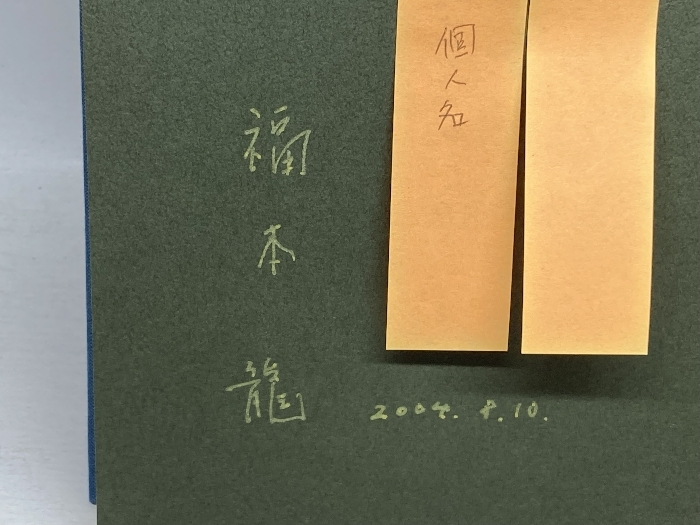 個人名
福本龍
2004. 8.10.